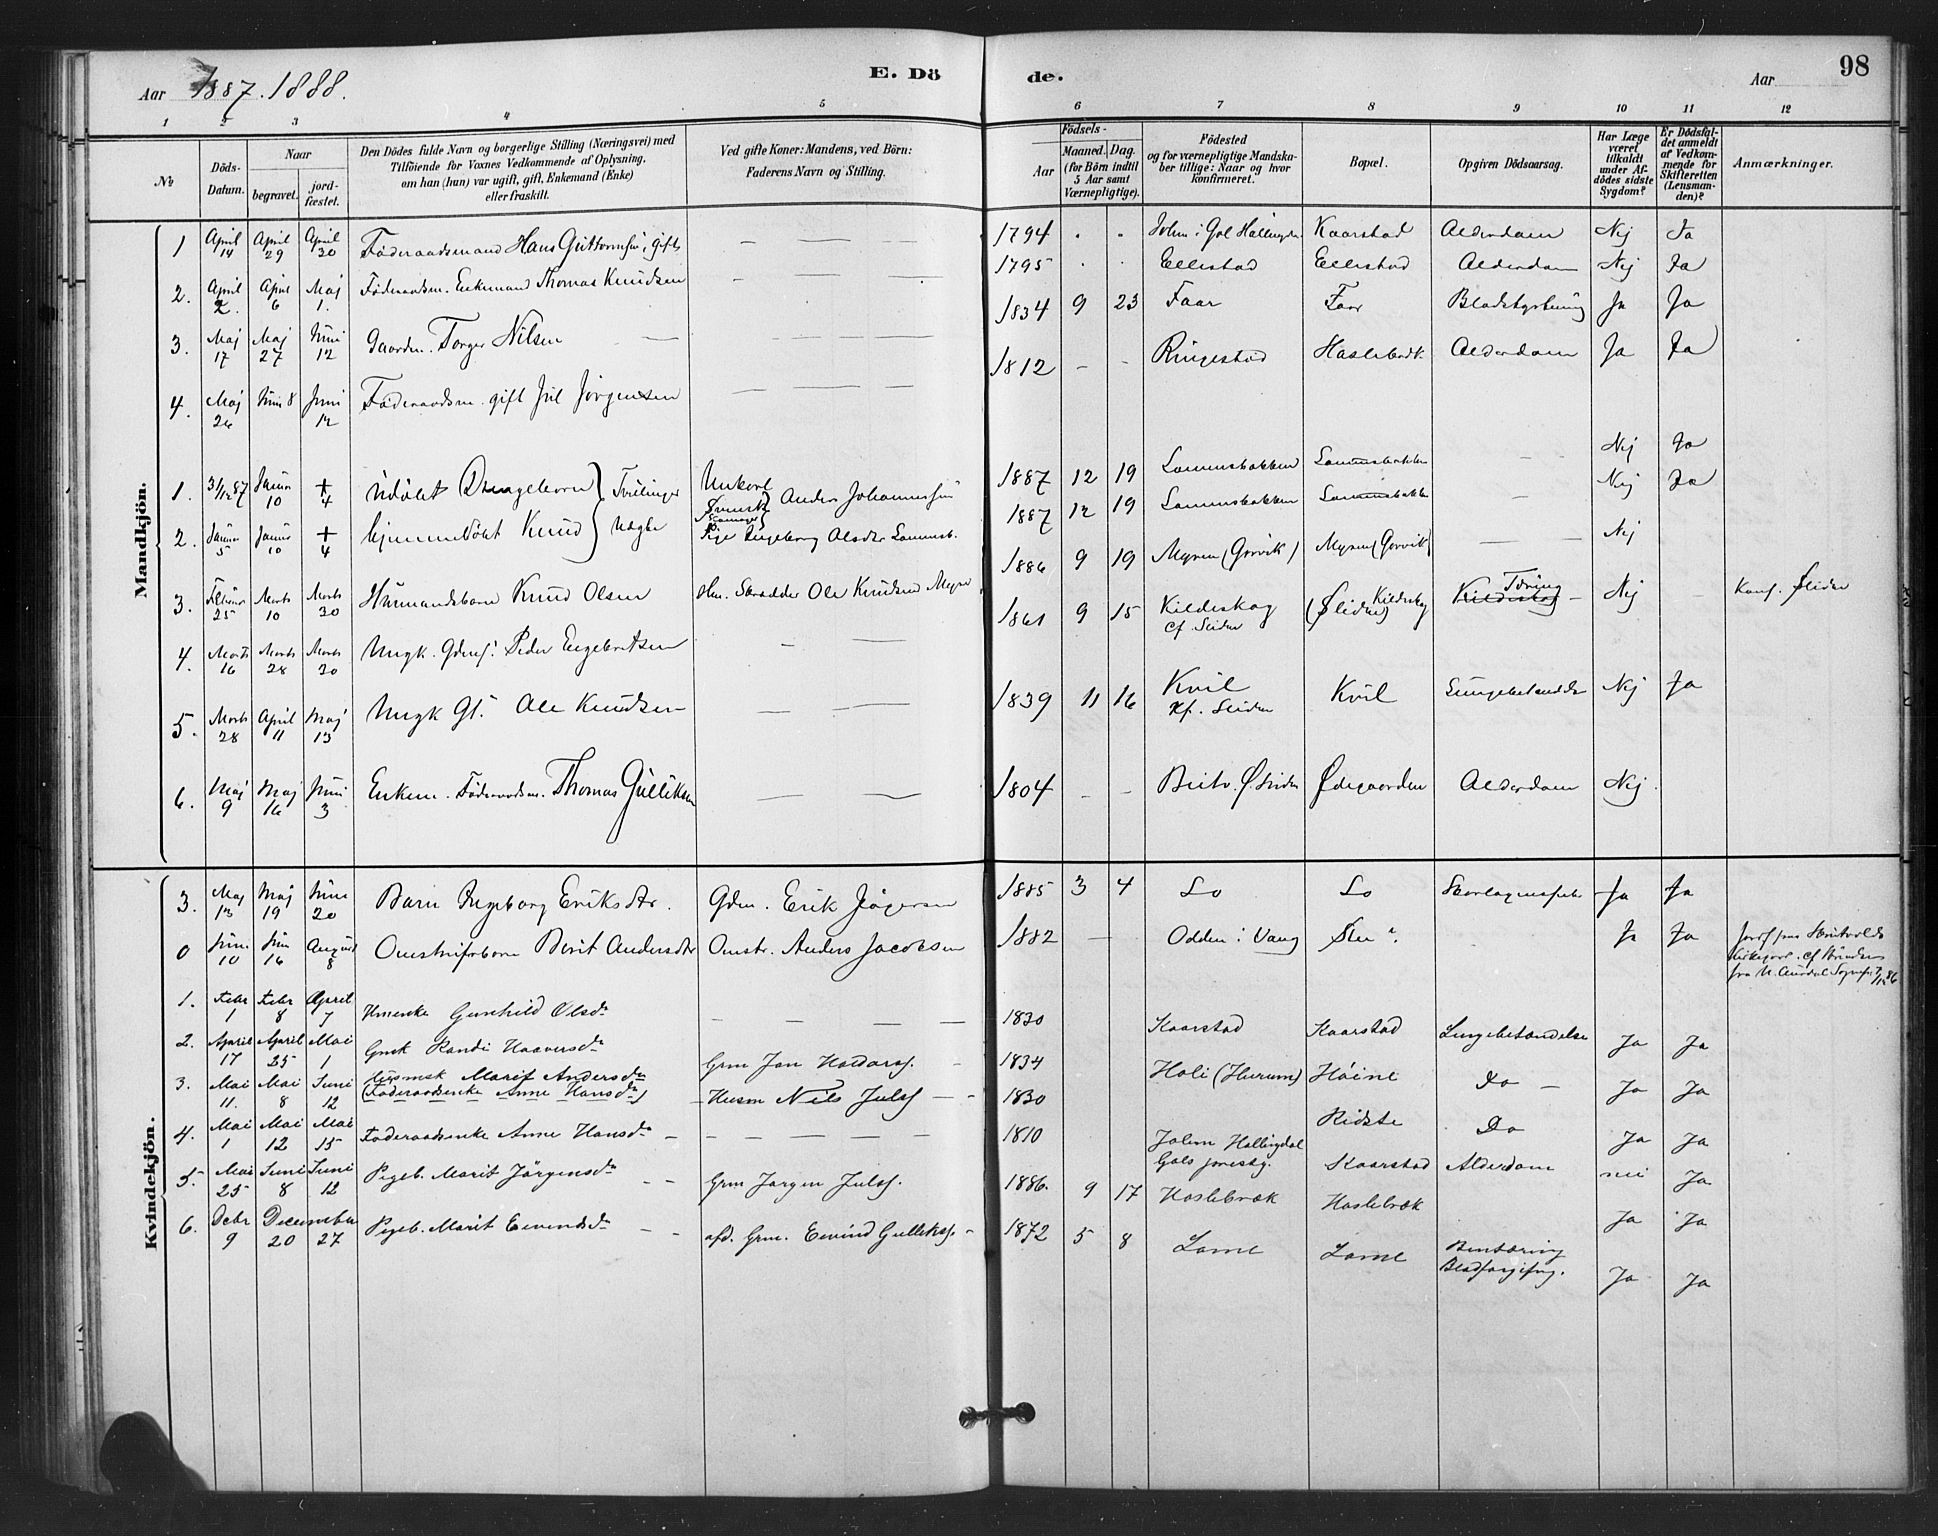 Aar 1887. 1888.
E. Dö de.
Aar 98
1 2 3 4 5 6 7 8 9 10 11 12
No
Döds-Datum.
Naar
begravet.
jord-fæstet.
Den Dödes fulde Navn og borgerlige Stilling (Næringsvei) med
Tilföiende for Voxnes Vedkommende af Oplysning,
om han (hun) var ugift, gift, Enkemand (Enke)
eller fraskilt.
Ved gifte Koner: Mandens, ved Börn:
Faderens Navn og Stilling.
Födsels-
Aar
Maaned. Dag.
(for Börn indtil
5 Aar samt
Værnepligtige).
Födested
og for værnepligtige Mandska-
ber tillige: Naar og hvor
konfirmeret.
Bopæl.
Opgiven Dödsaarsag.
Har Læge
været
tilkaldt
under Af-
dödes sidste
Sygdom?
Er Dödsfal-
det anmeldt
af Vedkom-
mende for
Skifteretten
(Lensman-
den)?
Anmærkninger.
Mandkjön.
1 April 14 April 29 April 30 Föderaadsmand Hans Guttormsen, gift — — — 1794 . . Golen i Gol Hallingd. Kaarstad Alderdom Nej Ja
2. April 2. April 6 Maj 1. Föderaadsm. Enkemand Thomas Knudsen — — — 1795 . . Ellestad Ellestad Alderdom Nej Ja
3. Maj 17 Maj 27 Juni 12 Gaardm. Torger Nilsen — — — 1834 9 23 Faar Faar Blodstyrtning Ja Ja
4. Maj 26 Juni 8 Juni 12 Föderaadsm. gift Jul Jörgensen — — — 1812 - - Ringestad Haslebræk Alderdom Ja Ja
1. 31/12 87 Januar 10 + 4 Udöbt Drengebarn } Tvillinger Anders Johannessen 1887 12 19 Lommsbakken Lommsbakken — Nej Ja
2. Januar 5 Januar 10 + 4 hjemmedöbt Knud } Uægte Pige Ingeborg Olsdtr Lommsb. 1887 12 19 Lommsbakken Lommsbakken — Nej Ja
3. Februar 25 Marts 10 Marts 30 Husmandsbarn Knud Olsen Hm. Skrædder Ole Knudsen Myren 1886 9 19 Myren (Gorvik) Myren (Gorvik) — — Nej
4. Marts 16 Marts 28 Marts 30 Ungk. Gdmsf. Peder Engebretsen - — 1861 9 15 Kildeskog Cf. Slidre Kildeskog (Ø Slidre) Kildeskog Tæring — Nej Konf. Ø Slidre
5. Marts 28 April 11 Maj 13 Ungk Gf. Ole Knudsen — — — 1839 11 16 Kvil Kf. Slidre Kvil Lungebetændelse Nej Ja
6. Maj 9 Maj 16 Juni 3 Enkem. Föderaadsm. Thomas Gulliksen — — 1804 - - Beito Ø. Slidre Ødegaarden Alderdom Nej.
Kvindekjön.
3. Maj 13 Maj 19 Juni 20 Barn Ingeborg Eriksdtr. Gdm. Erik Jögersen 1885 3 4 Lo Lo Skarlagensfeber Ja Ja
0 Juni 10 Juni 16 August 8 Omstreiferbarn Berit Andersdtr Omstr. Anders Jacobsen 1882 — Odden i Vang Ja Ja
fra N. Aurdal
1. Febr 1 Febr 8 April 7 Hmenke Gunhild Olsdr — — — — 1830 Kaarstad Kaarstad Lungebetændelse Ja Ja
2. April 17 April 25 Mai 1 Gmk Randi Haaversdr Grm Jon Haldorss. - 1834 Hali (Hurum) Höine Do — Ja Ja
3. Mai 11. Mai 8 Juni 12 Husmsk Marit Andersdr (Föderaadsenke Anne Hansdr) Husm Nils Julss — - 1830 Ridste Do Ja Ja
4. Mai 1 Mai 12 Mai 15 Föderaadsenke Anne Hansdr — — — — — 1810 Golem Hallingdal Gols prestg. Kaarstad Alderdom nei Ja
5. Mai 25 Juni 8 Juni 12 Pigeb. Marit Jörgensdr - - Grm Jørgen Julss. 1886. 9 17 Haslebræk Haslebræk Ja Ja
6. Debr 9 December 20 27 Pigeb. Marit Eivendsdr — - afd. Grm. Eivind Gulliks. - 1872 5 8 Lome Lome Benskæring Blodforgiftng. Ja Ja